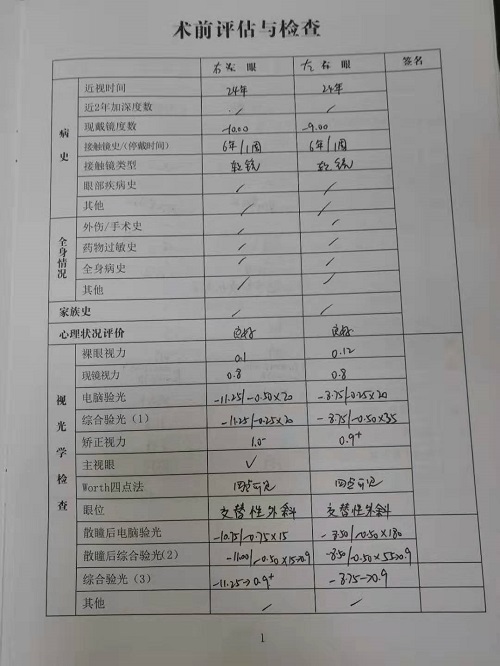 术前评估与检查
右眼 左眼 签名
病史
近视时间 24年 24年
近2年加深度数 / /
现戴镜度数 -10.00 -9.00
接触镜史/(停戴时间) 6年/1周 6年/1周
接触镜类型 软镜 软镜
眼部疾病史 / /
其他 / /
全身情况
外伤/手术史 / /
药物过敏史 / /
全身病史 / /
其他 / /
家族史 / /
心理状况评价 良好 良好
视光学检查
裸眼视力 0.1 0.12
现镜视力 0.8 0.8
电脑验光 -11.25/-0.50×20 -8.75/-0.25×20
综合验光（1） -11.25/-0.25×20 -8.75/-0.50×35
矫正视力 1.0- 0.9+
主视眼 ✓
Worth四点法 四点可见 四点可见
眼位 交替性外斜 交替性外斜
散瞳后电脑验光 -10.75/-0.75×15 -8.50/-0.50×180
散瞳后综合验光(2) -11.00/-0.50×15→0.9 -8.50/-0.50×55→0.9
综合验光（3） -11.25→0.9+ -8.75→0.9
其他 / /
1